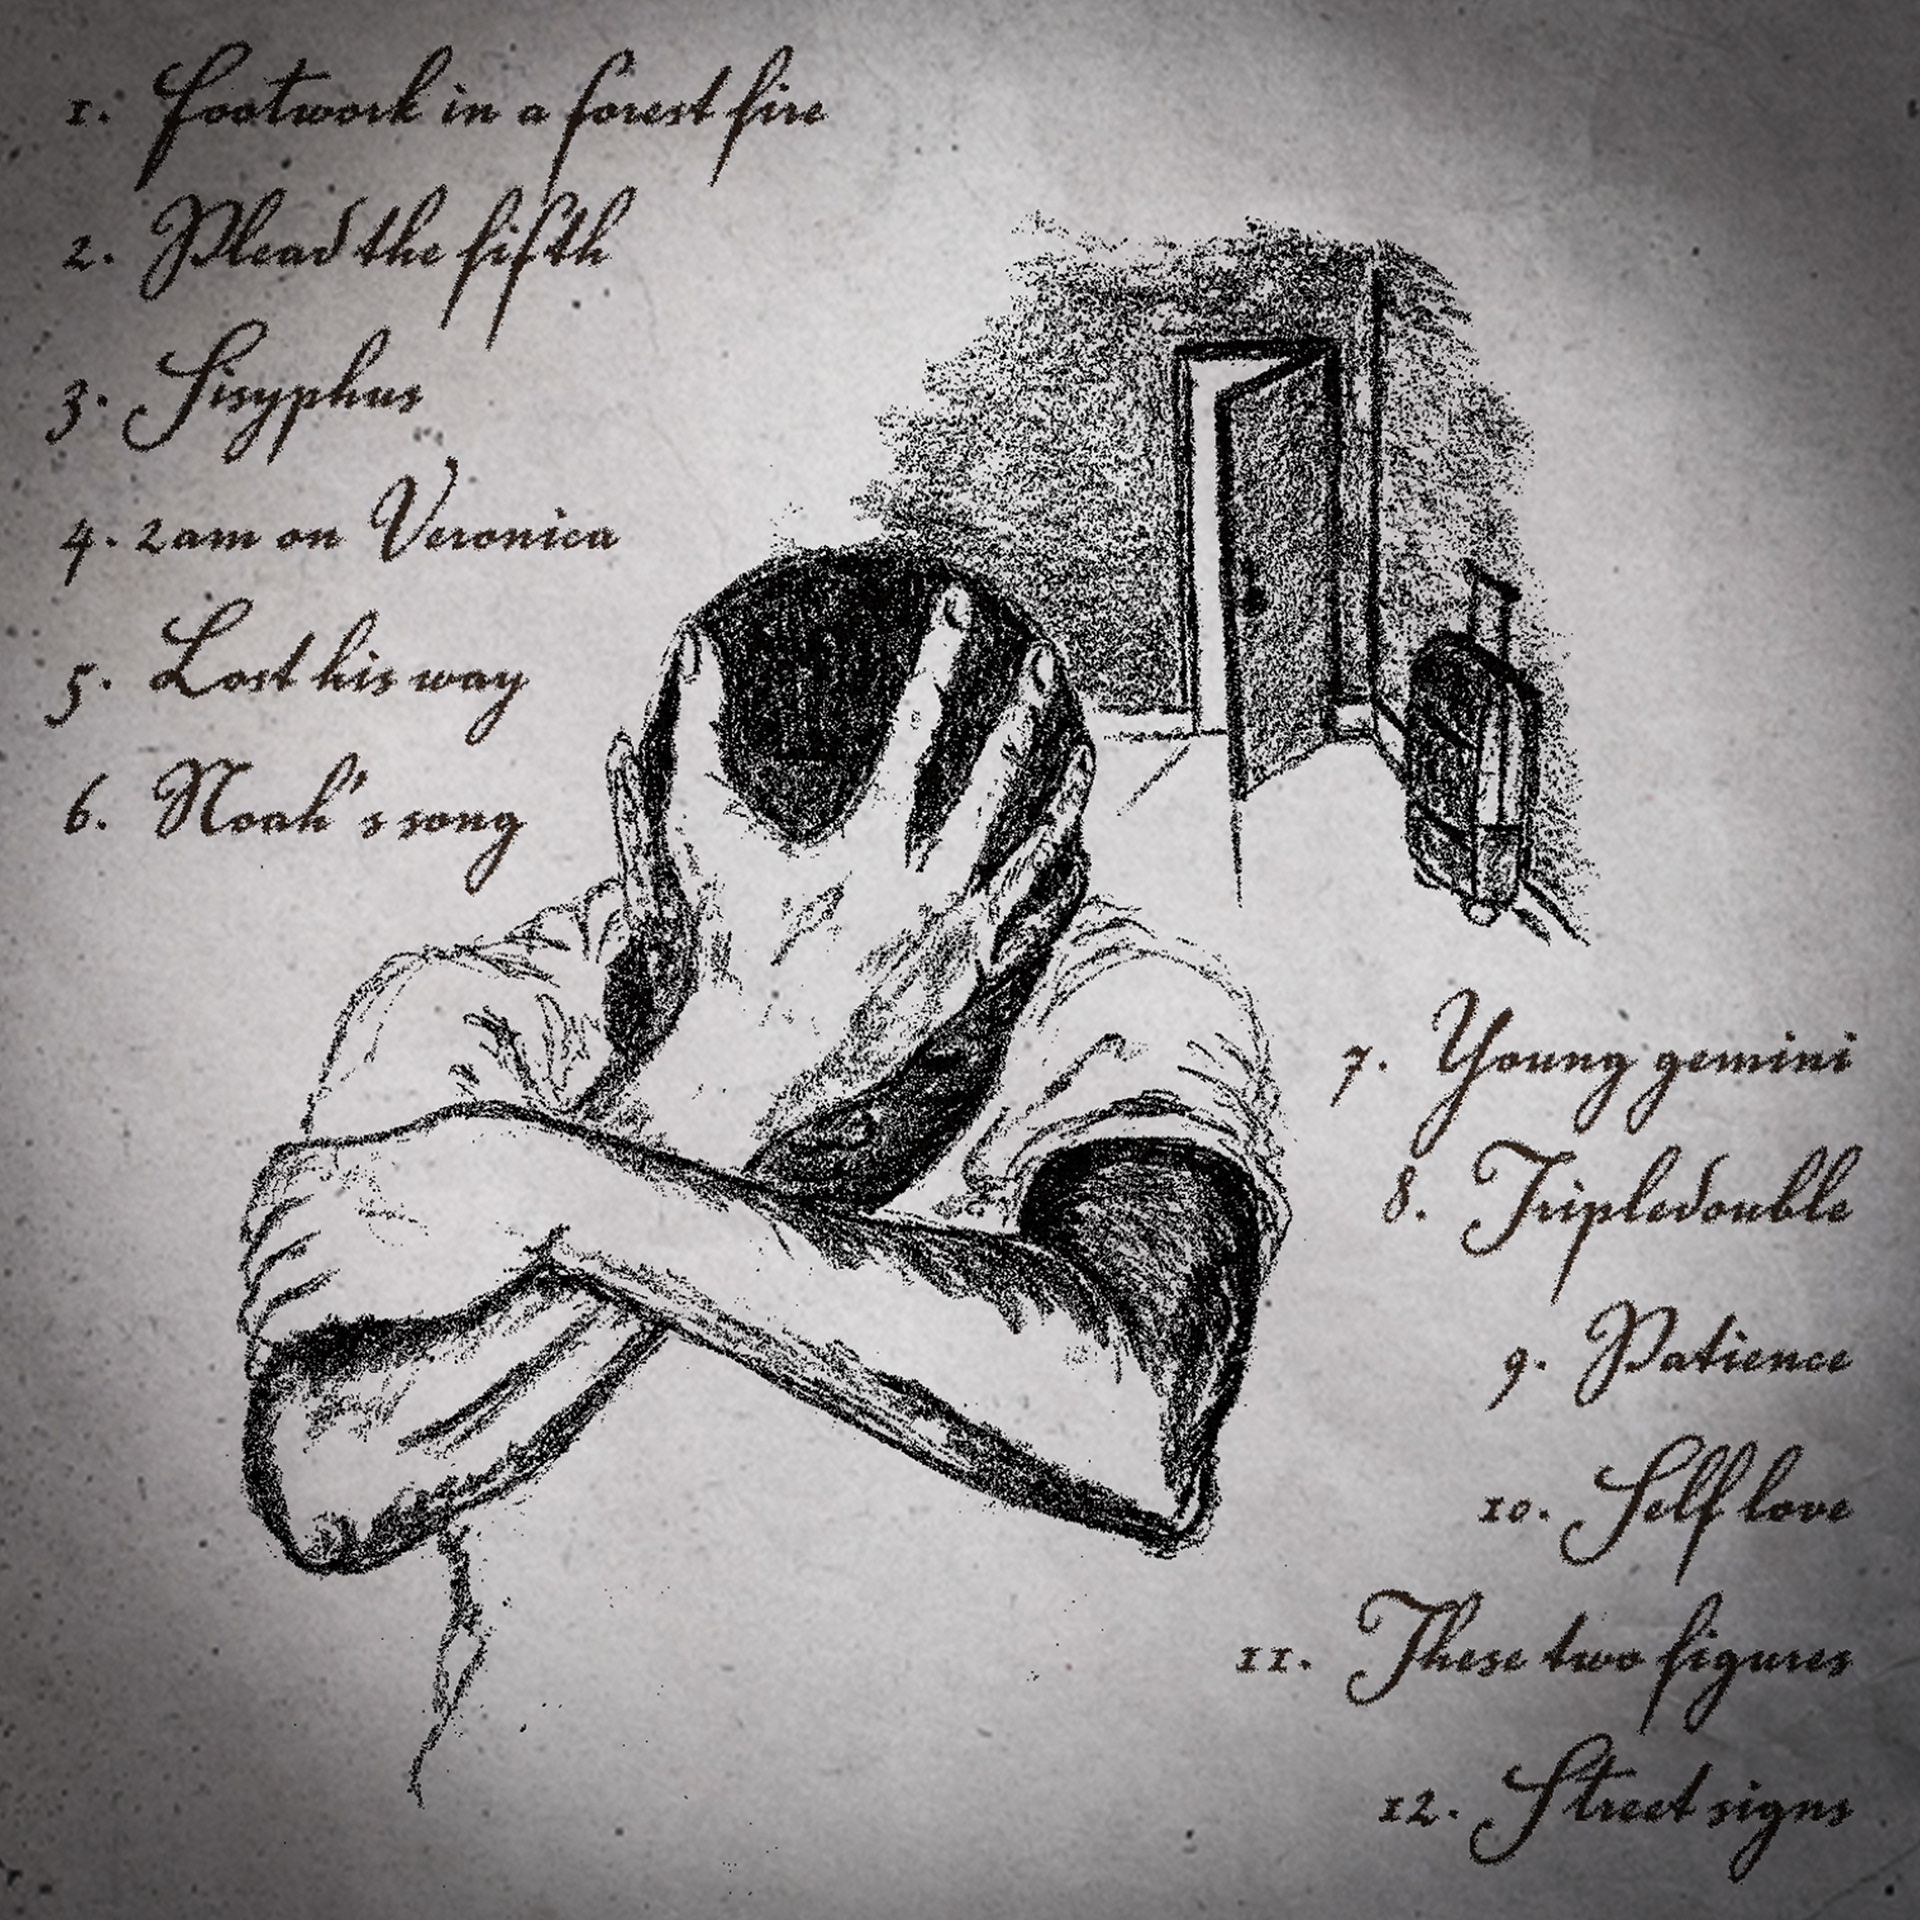 1. Footwork in a forest fire
2. Plead the fifth
3. Sisyphus
4. 2am on Veronica
5. Lost his way
6. Noah's song
7. Young gemini
8. Tripledouble
9. Patience
10. Self love
11. These two figures
12. Street signs